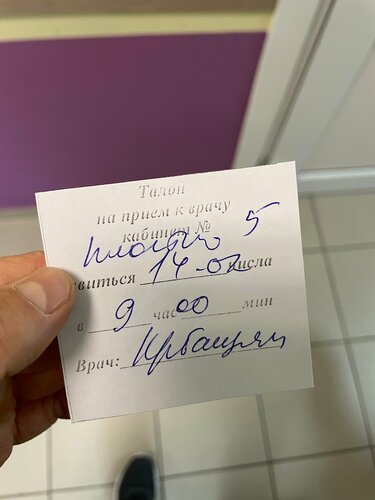 Талон
на прием к врачу
кабинет № 5
явиться 14-02 числа
в 9 час 00 мин
Врач: